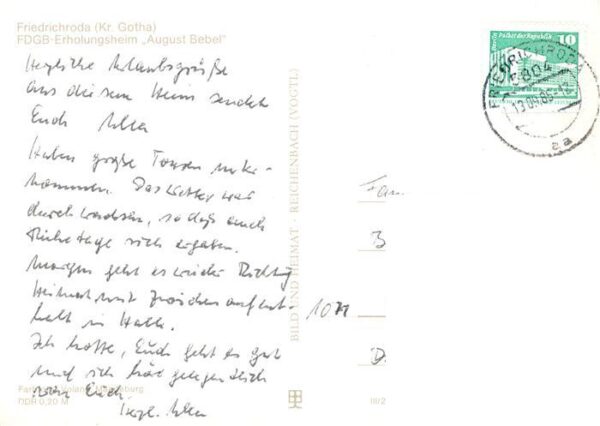 Friedrichroda (Kr. Gotha)
FDGB-Erholungsheim „August Bebel"
Herzliche Urlaubsgrüße
aus diesem Heim sendet
Euch Ulla
Haben große Touren unter-
nommen. Das Wetter war
durchwachsen, so daß auch
Ruhetage sich ergaben.
Morgen geht es wieder Richtung
Heimat mit Zwischenaufent-
halt in Halle.
Ich hoffe, Euch geht es gut
und ich hör gelegentlich
von Euch.
Herzl. Ulla
DDR 0,20 M
BILD UND HEIMAT · REICHENBACH (VOGTL)
III/2
Berlin, Palast der Republik
10
FRIEDRICHRODA
5804
aa
Fam
B
107
D